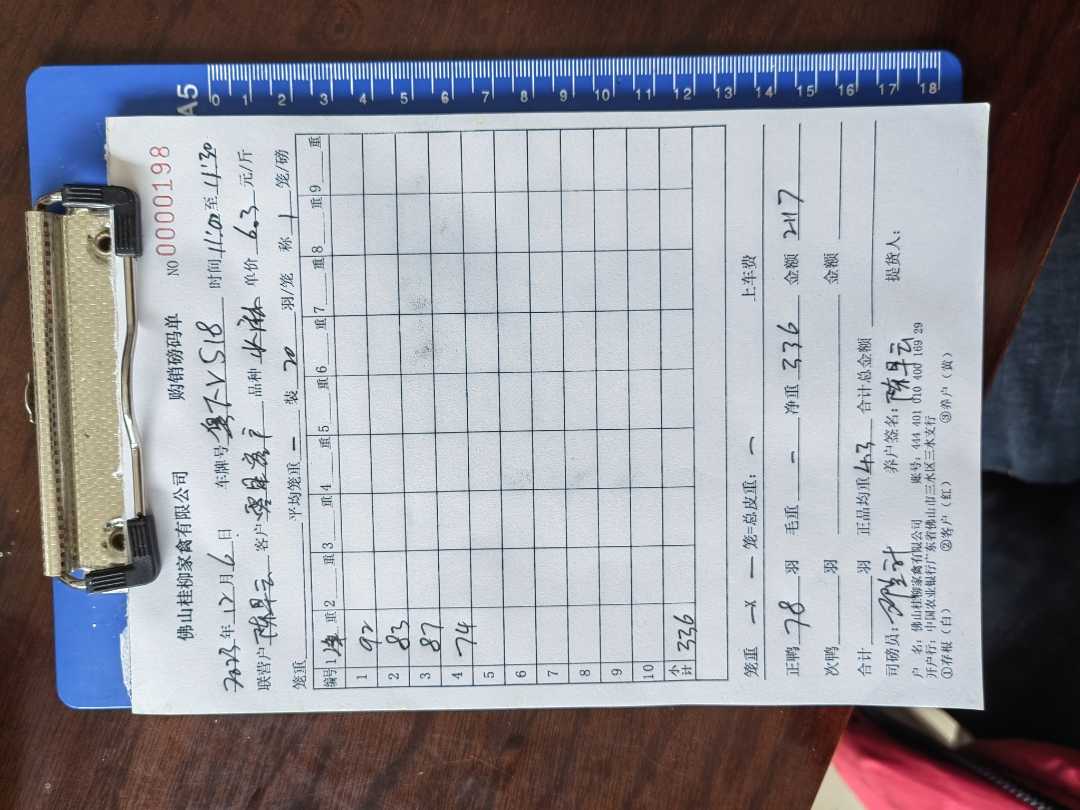 A5
0 1 2 3 4 5 6 7 8 9 10 11 12 13 14 15 16 17 18
佛山桂柳家禽有限公司 购销磅码单 NO 0000198
2023年12月6日 车牌号 V518 时间11:00至4:30
联营户陈早云 客户 品种 单价6.3元/斤
笼重 平均笼重一 装20羽/笼 称1笼/磅
编号 1净重 2重 3重 4重 5重 6重 7重 8重 9重
1 92
2 83
3 87
4 74
5
6
7
8
9
10
小计 336
笼重一×一笼=总皮重:一 上车费
正鸭78羽 毛重一 净重336 金额2117
次鸭 羽 金额
合计 羽 正品均重4.3 合计总金额
司磅员: 养户签名:陈早云 提货人:
户 名:佛山桂柳家禽有限公司 账号:444 401 010 400 169 29
开户行:中国农业银行广东省佛山市三水区三水支行
①存根(白) ②客户(红) ③养户(黄)